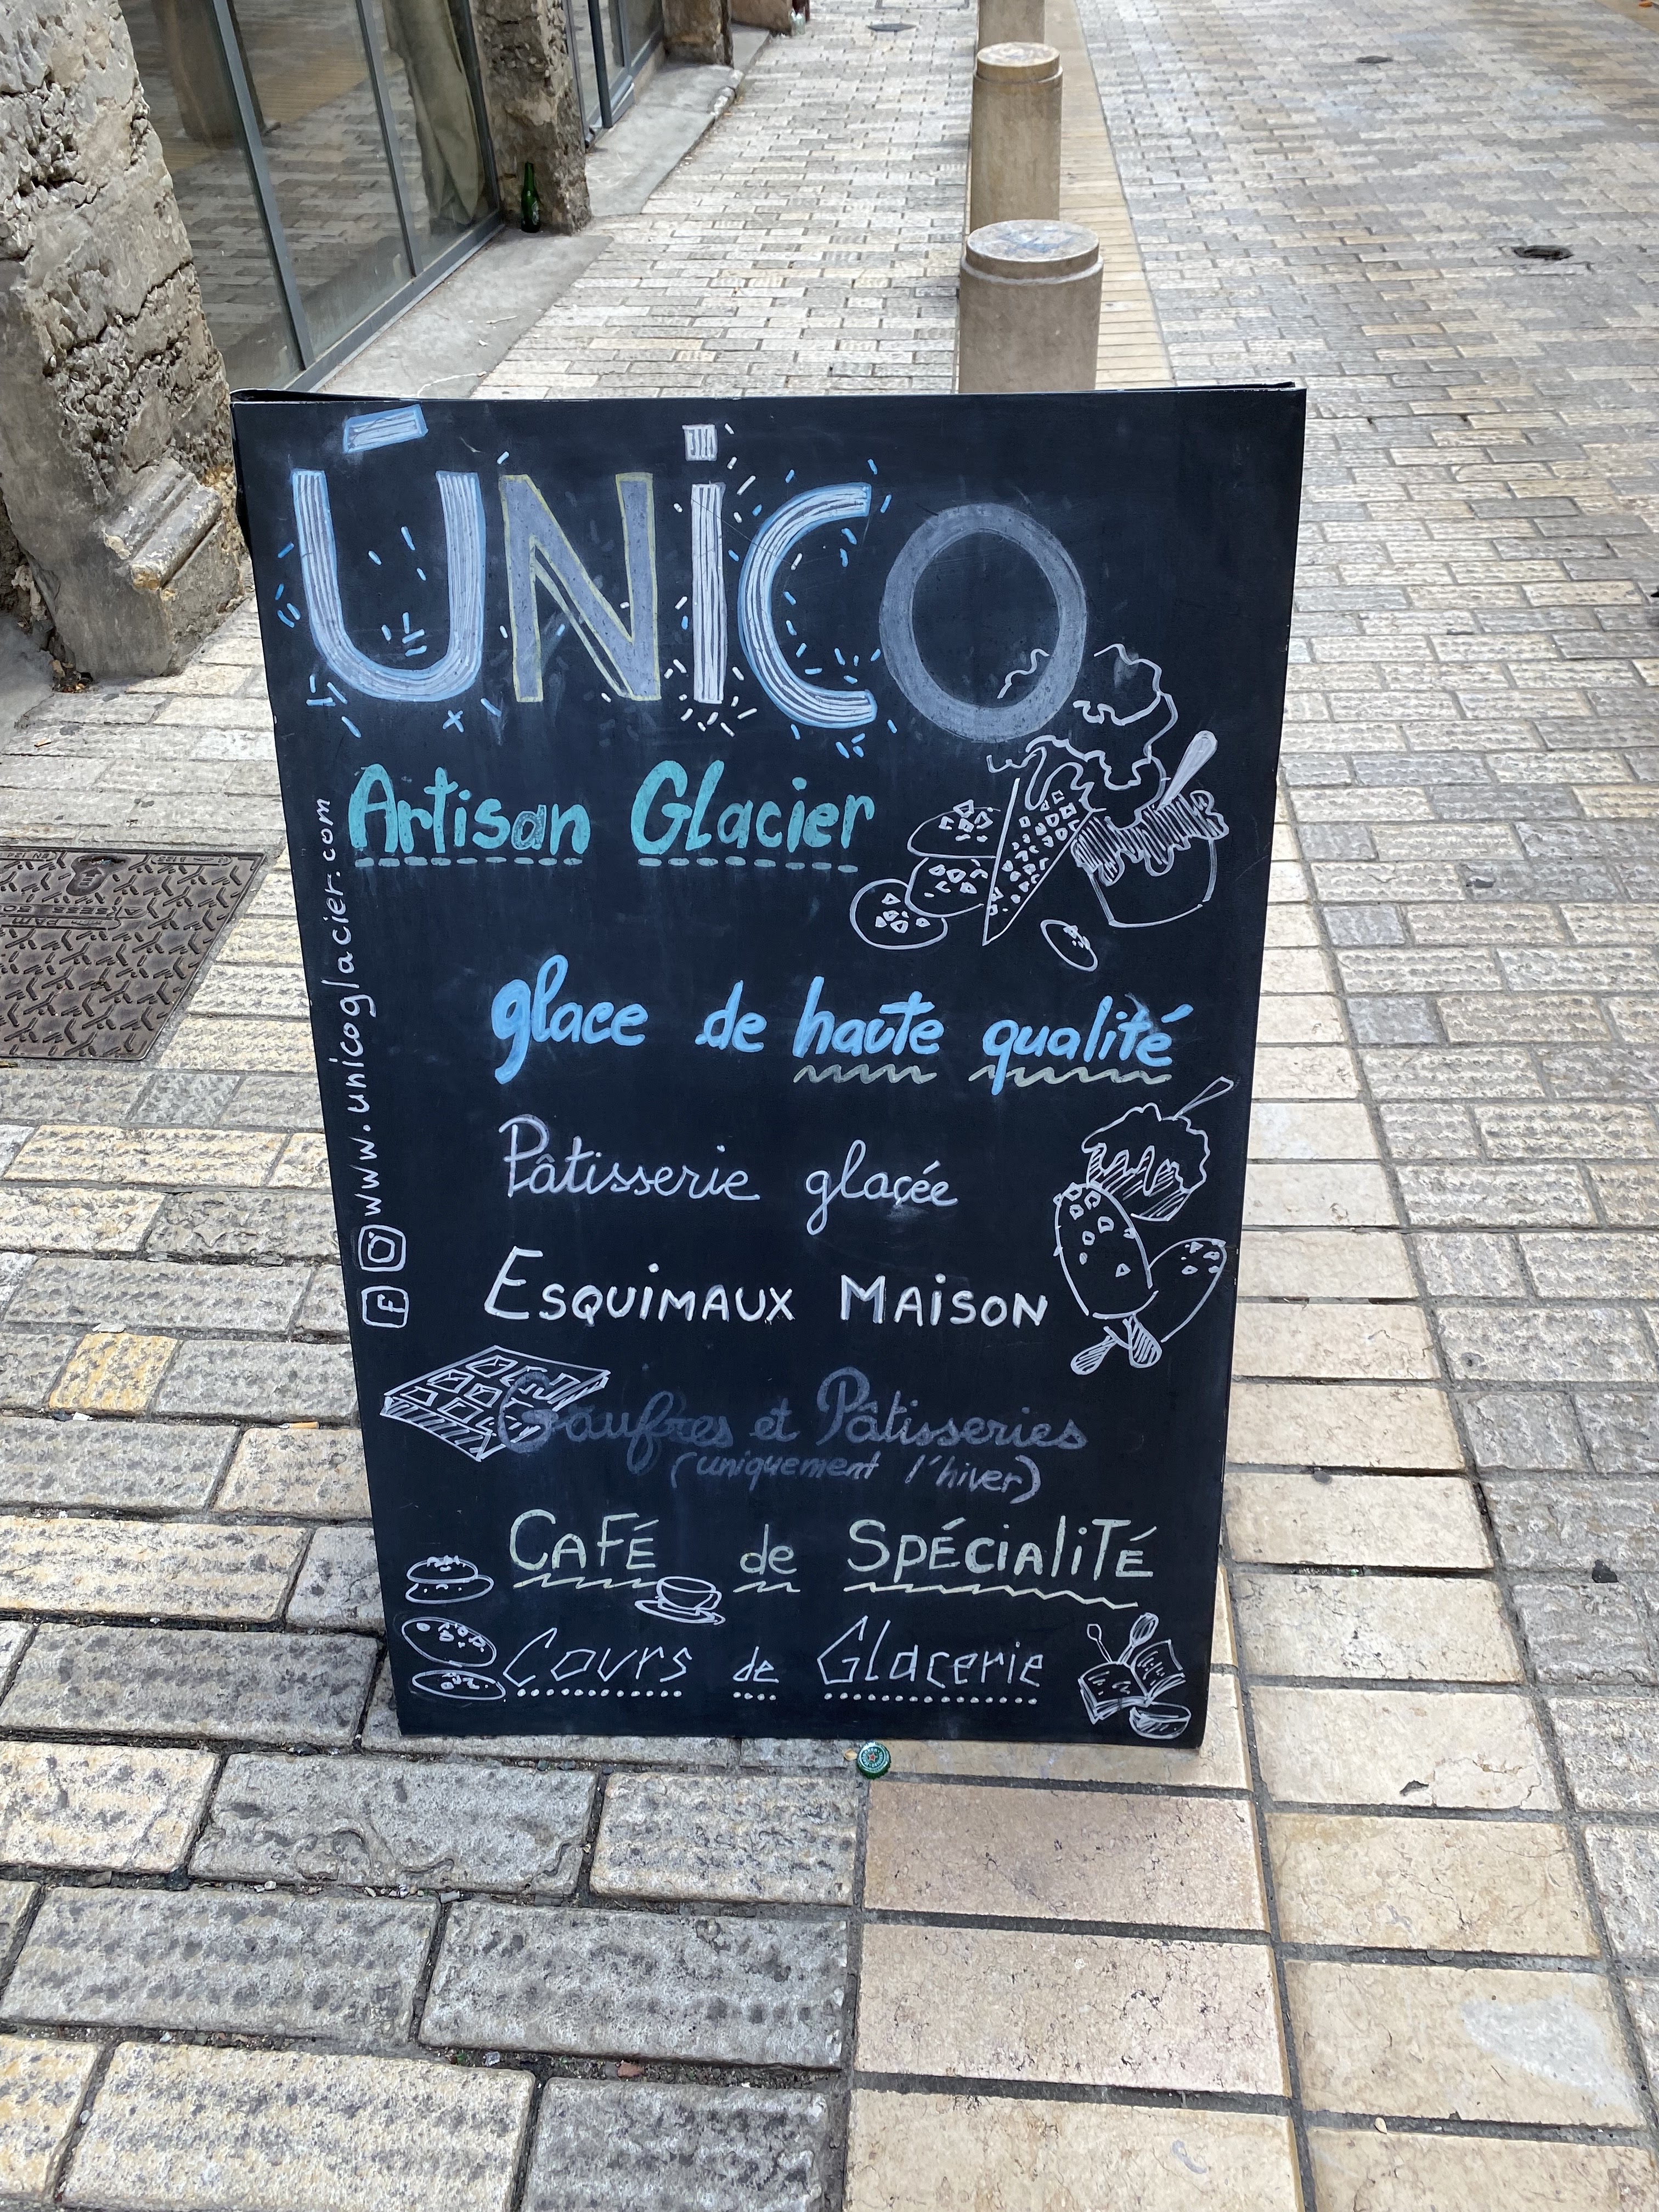 ÚNiCO
Artisan Glacier
glace de haute qualité
Pâtisserie glaçée
ESQUIMAUX MAiSON
Gaufres et Pâtisseries
(uniquement l'hiver)
CAFÉ de SPÉCiAliTÉ
Cours de Glacerie
www.unicoglacier.com